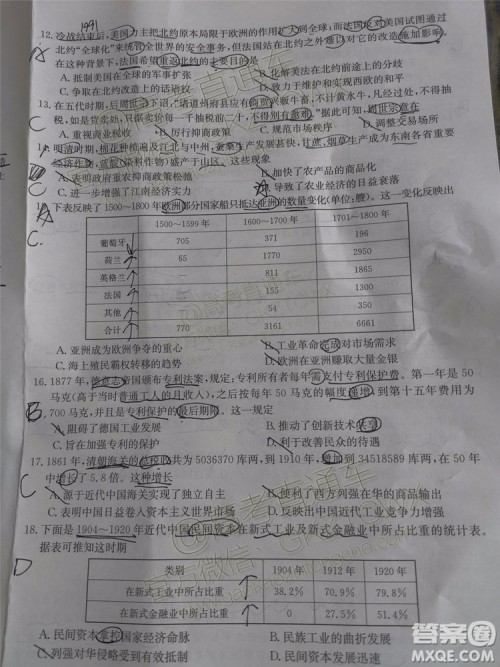 1991
12. 冷战结束后,美国力主把北约原本局限于欧洲的作用扩大到全球;而法国反对美国试图通过
北约“全球化”来统管全世界的安全事务,但法国站在北约之外难以对它的改造施加影响。
在这种背景下,法国希望重返北约的主要目的是
A. 抵制美国在全球的军事扩张
B. 化解美法在北约改造上的矛盾
C. 争取在北约改造上的话语权
D. 推进和实现西欧的和平
C
13. 在五代时期,后周世宗下诏,“诸道州府县应有商贾兴贩牛畜,不计黄水牛,凡经过处,并不得
抽税。如是货卖处,祇仰据卖价每一千抽税钱三十,不得别有邀难”。据此,周世宗意在
A. 重视商业税收
B. 厉行重商政策
C. 规范市场秩序
D. 调整交易场所
C
14. 明清时期,棉花种植遍及江北与中州,蚕桑生产发展甚快,甘蔗、烟草生产成为东南各省重要
经济作物,蓝靛(染料作物)盛产于山区。这些现象
A. 表明政府重农抑商政策松弛
B. 加快了农产品的商品化
C. 进一步增强了江南经济实力
D. 导致了农业经济的日益衰落
15. 下表反映了1500~1800年欧洲部分国家船只抵达亚洲的数量变化(单位:艘)。这一变化反映出
C.
1500—1599年 1600—1700年 1701—1800年
葡萄牙 705 371 196
荷兰 65 1770 2950
英格兰 — 811 1865
法国 155 1300
其他 54 350
合计 770 3161 6661
A. 亚洲成为欧洲争夺的重心
B. 工业革命完成对市场需求
C. 海上殖民霸权转移的趋势
D. 欧洲在亚洲赚取大量金银
16. 1877年,德意志帝国颁布专利法案,规定:专利所有者每年需支付专利保护费。第一年是50
马克(高于当时普通工人的月收入),之后按每年50马克的幅度递增,到第十五年费用为
B
700马克,并且是专利保护的最后期限。这一规定
A. 阻碍了德国工业发展
B. 推动了创新技术共享
C. 旨在加强专利的保护
D. 利于改善民众的待遇
17. 1861年,清朝海关的总税收共为5036370库两,到1910年,增加到34518589库两,在50年
中增长了5.8倍。这种增长
A. 源于近代中国海关实现了独立自主
B. 便利了西方列强在华的商品输出
C. 表明中国日益成为世界市场的一部分
D. 反映出近代中国工业竞争力增强
18. 下面是1904~1920年近代中国民间资本在新式工业及新式金融业中所占比重的统计表。
据表可推知这时期
D
类别 1904年 1912年 1920年
在新式工业中所占比重 38.2% 70.9% 79.8%
在新式金融业中所占比重 0 27.5% 51.4%
A. 民间资本掌控国家经济命脉
B. 民间工业的曲折发展
C. 列强对华侵略受到有效遏制
D. 民间资本发展迅速
答案圈
MXQE.COM